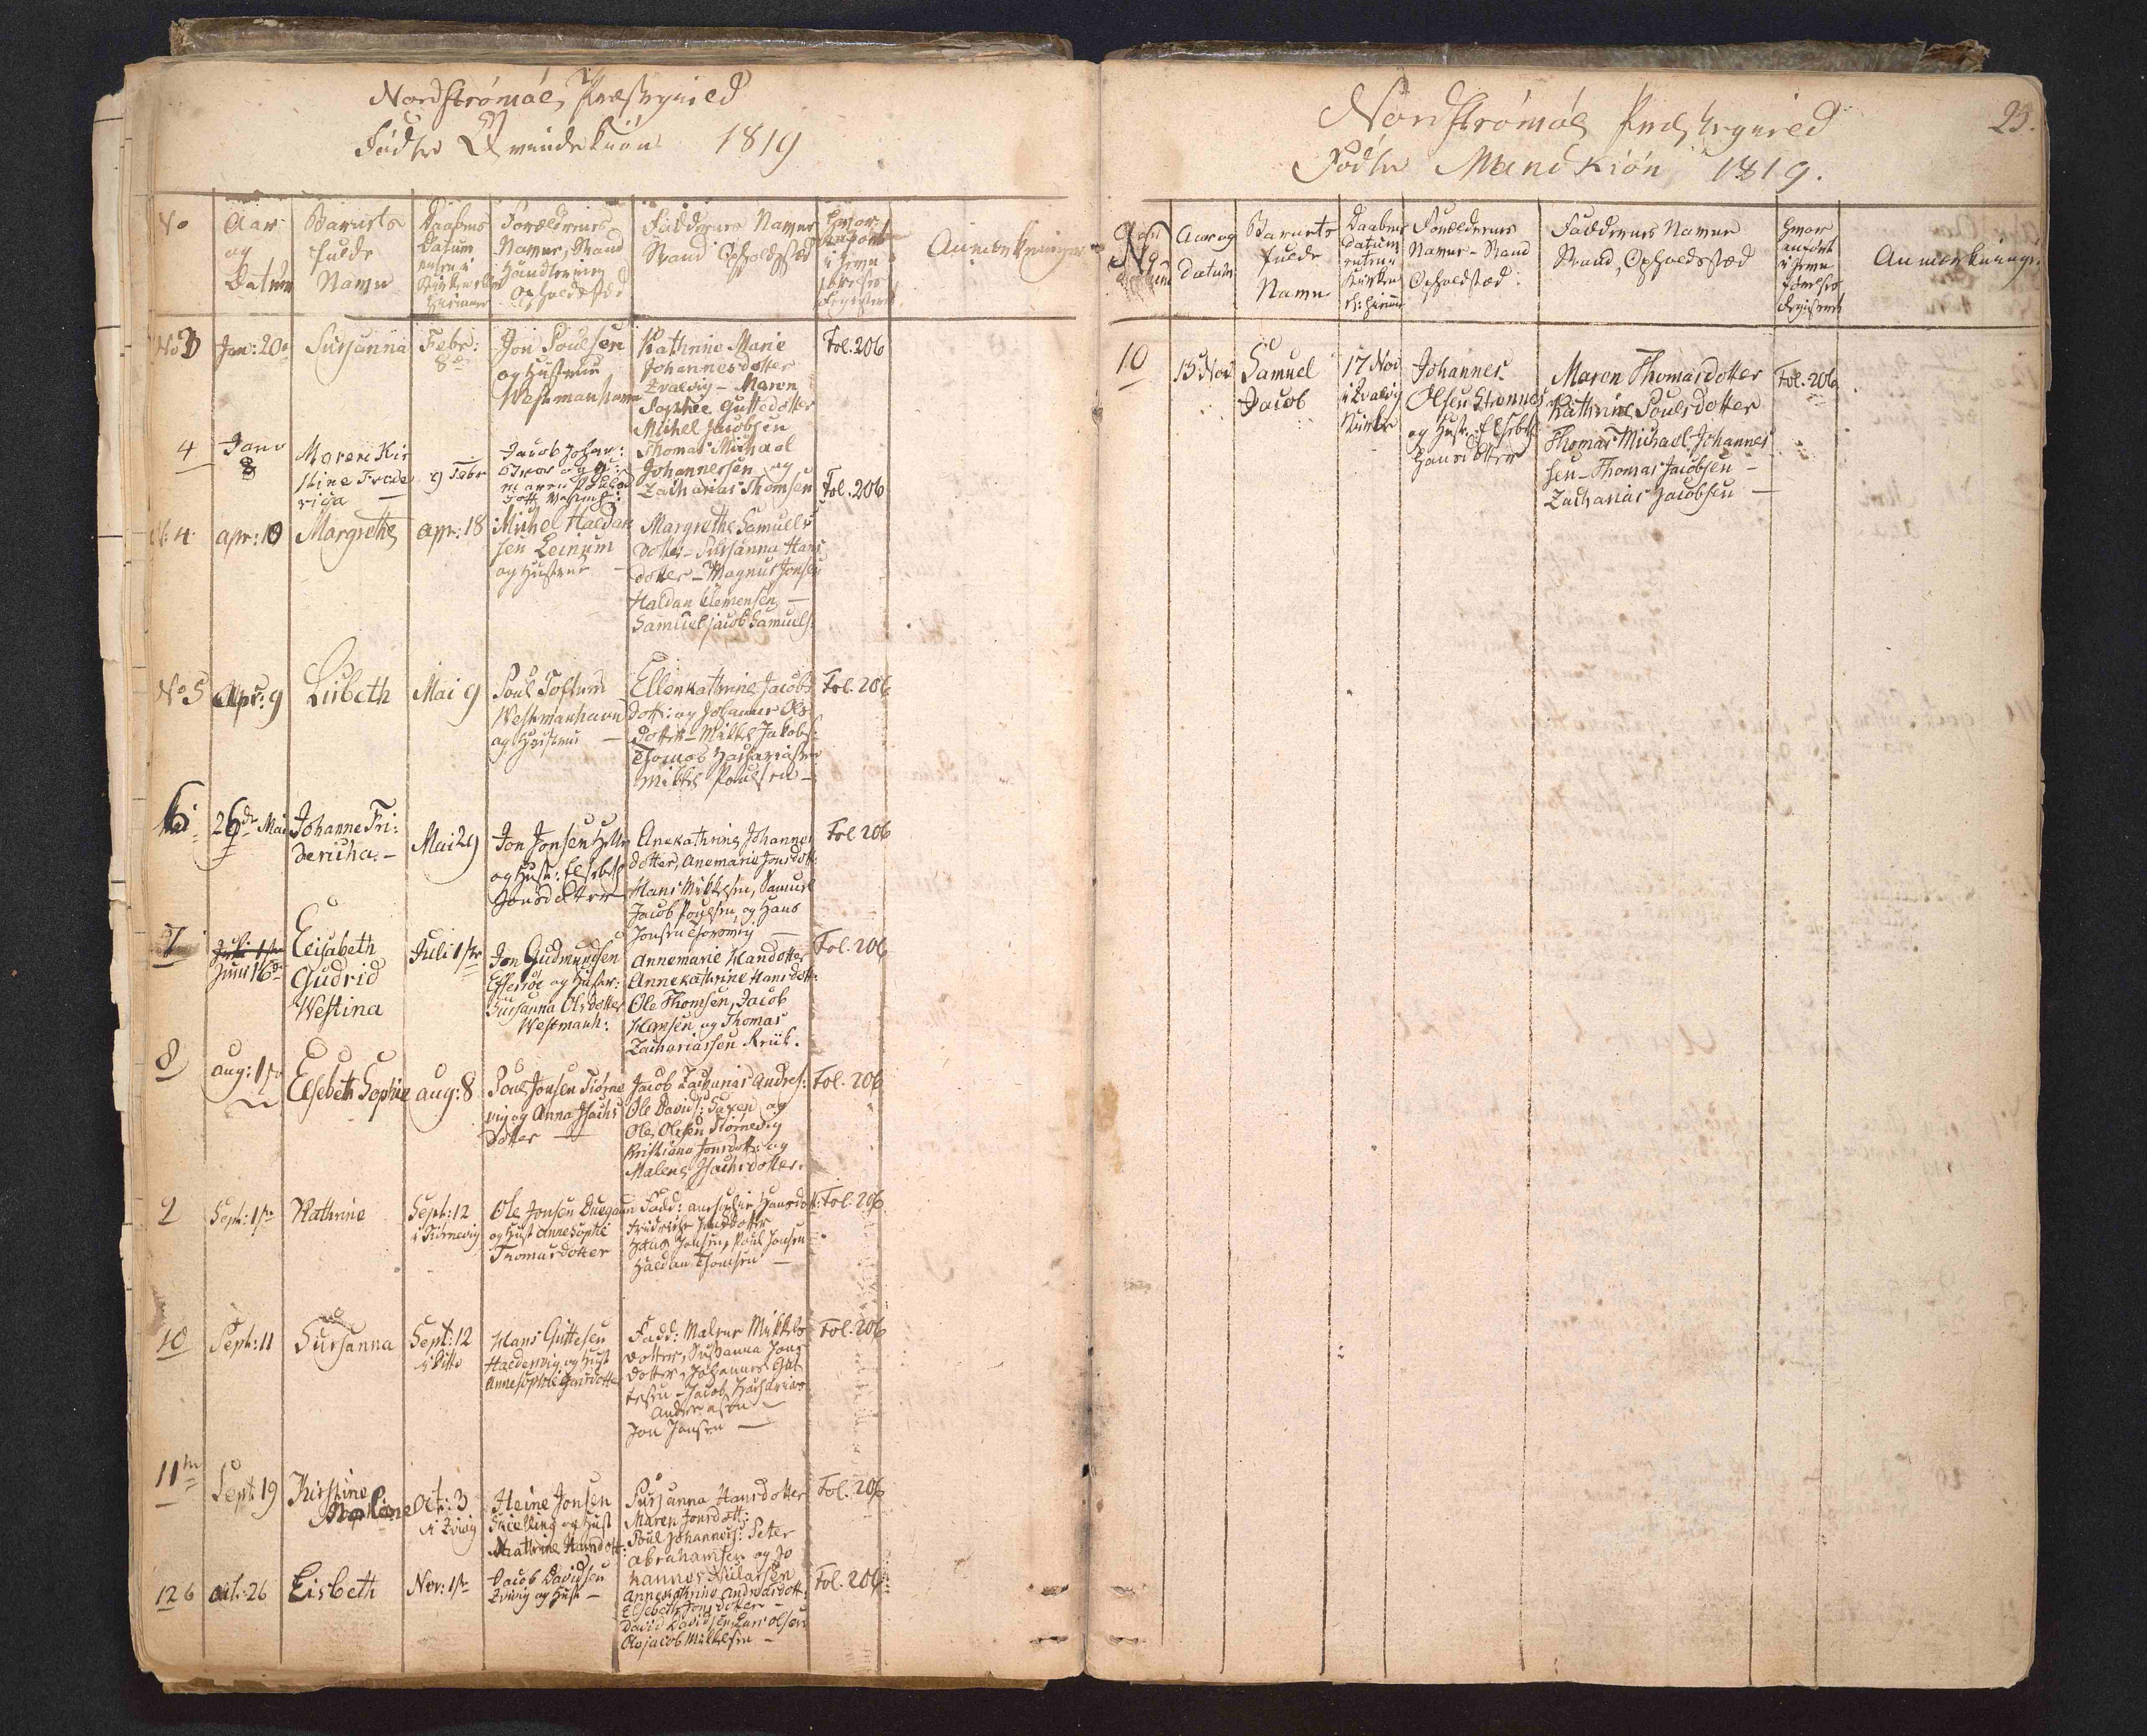 Nordstrømøe Præstegield
Fødte Qvindekiøn 1819
No
Aar
og
Datum
Barnets
fulde
Navn
Daabens
Datum
enten i
Kirken eller
hiemme
Forældrenes
Navne, Stand
Haandtering
Opholdsted
Faddernes Navne
Stand Opholdssted
Hvor
anført
i Jevn
førelses
Registeret
Anmerkninger
No 3
Jan: 20de
Susanna
Febr:
8de
Jon Poulsen
og Hustrue
Westmanhavn
Kathrine Marie
Johannesdotter
Qvalvig - Maren
Sophie Guttedotter
Michel Jacobsen
Fol. 206
4
Janv
8
Maren Kir
stine Frede
rica
9 Febr
Jacob Johan:
og
Maren Pouls
dott
Thomas Michael
Johannessen og
Zacharias Thomsen
Fol. 206
N: 4
Apr: 10
Margrethe
Apr: 18
Michel Haldan
sen Leinum
og Hustrue
Margrethe Samuels
dotter - Susanna Hans
dotter - Magnus Jonsen
Haldan Clemensen -
Samuel Jacob Samuels:
No 5
Apr: 9
Lisbeth
Mai 9
Poul Joensen
Westmanhavn
og Hustrue -
Ellenkathrine Jacobs
dott: og Johanne Ols
dotter - Mikkel Jakobs:
Thomas Zachariasen
Mikkel Poulsen -
Fol. 206
6
26de Mai
Johanne Fri:
dericha -
Mai 29
Jon Jonsen
og Hust: Elsebeth
Hansdotter
Anekathrine Johannes
dotter, Anemarie Jonsdott:
Hans Mikkelsen, Samuel
Jacob Poulsen og Hans
Jonsen
Fol 206
7
Juli 1ste
Juni 16de
Elisabeth
Gudrid
Westina
Juli 1ste
Jon Gudmundsen
og Hustr:
Susanna Olsdotter
Westmanh:
Annemarie Hansdotter
Annekathrine Hansdott:
Ole Thomsen, Jacob
Hansen og Thomas
Zachariassen
Fol. 206
8
Aug: 1ste
Elsebeth Sophie
Aug: 8
Poul Jonsen Tiørne
vig og Anna Isachs
dotter -
Jacob Zacharias Andres:
Ole Davids: Saxen og
Ole Olesen Tiørnevig
Kristiana Jonsdott: og
Malene Isachsdotter.
Fol. 206
9
Sept: 1ste
Kathrine
Sept: 12
i Tiørnevig
Ole Jonsen
og Hust Annesophie
Thomasdotter
Fadd: Hansdott:
Friderike Jonsdotter
Hans Jonsen, Poul Jonsen
Haldan Thomsen -
Fol. 206
10
Sept: 11
Sussanna
Sept: 12
i ditto
Hans Guttesen
Haldervig og Hust
Annesophie Jonsdotter
Fadd: Malene Mikkels
dotter, Susanna Jons
dotter, Johannes Gut
tesen - Jacob Zacharias
Andreasen -
Jon Jonsen -
Fol. 206
11te
Sept 19
Kirstine
Malene
Oct: 3
i Qvivig
Heine Jonsen
Skielling og Hust
Kathrine Hansdott:
Susanna Hansdotter
Maren Jonsdott:
Poul Johannes: Peter
Abrahamsen og Jo
hannes
Fol. 206
12
Oct: 26
Lisbeth
Nov: 1ste
Jacob Davidsen
Qvivig og Hust -
Annekathrine Andreasdott:
Elsebeth Jonsdotter -
David Davidsen, Lars Olsen
Ole Jacob Mikkelsen -
Fol. 206
Nordstrømøe Præstegield
25.
Fødte Mandkiøn 1819.
No
Aar og
datum
Barnets
fulde
Navn
Daabens
datum
enten i
Kirken
el: hiemme
Forældrenes
Navne - Stand
Opholdsted:
Faddernes Navne
Stand, Opholdssted
Hvor
anført
i Jevn
førelses
Registeret
Anmerkninger
10
13 Nov
Samuel
Jacob
17 Nov
i Qvalvig
Kirke
Johannes
Olsen Strømnes
og Hust: Elsebeth
Hansdotter
Maren Thomasdotter
Kathrine Poulsdotter
Thomas Michael Johannes
sen - Thomas Jacobsen -
Zacharias Jacobsen -
Fol. 206